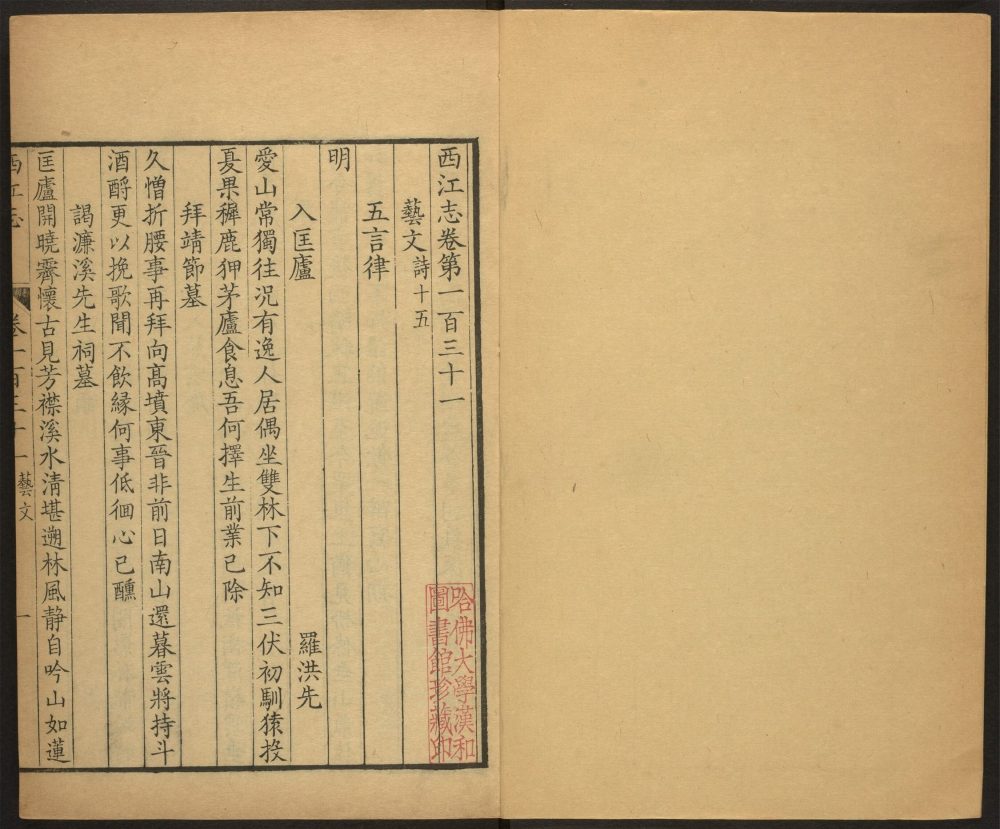 西江志卷第一百三十一
藝文詩十五
五言律
明
入匡廬 羅洪先
愛山常獨往况有逸人居偶坐雙林下不知三伏初馴猿投
憂果穉鹿狎茅廬食息吾何擇生前業已除
拜靖節墓
久憎折腰事再拜向高墳東晉非前日南山還暮雲將持斗
酒酹更以挽歌聞不飲緣何事低徊心已醺
謁濂溪先生祠墓
匡廬開曉霽懷古見芳襟溪水清堪遡林風静自吟山如蓮
西江志 卷一百三十一 藝文 一
哈佛大學漢和
圖書館珍藏印